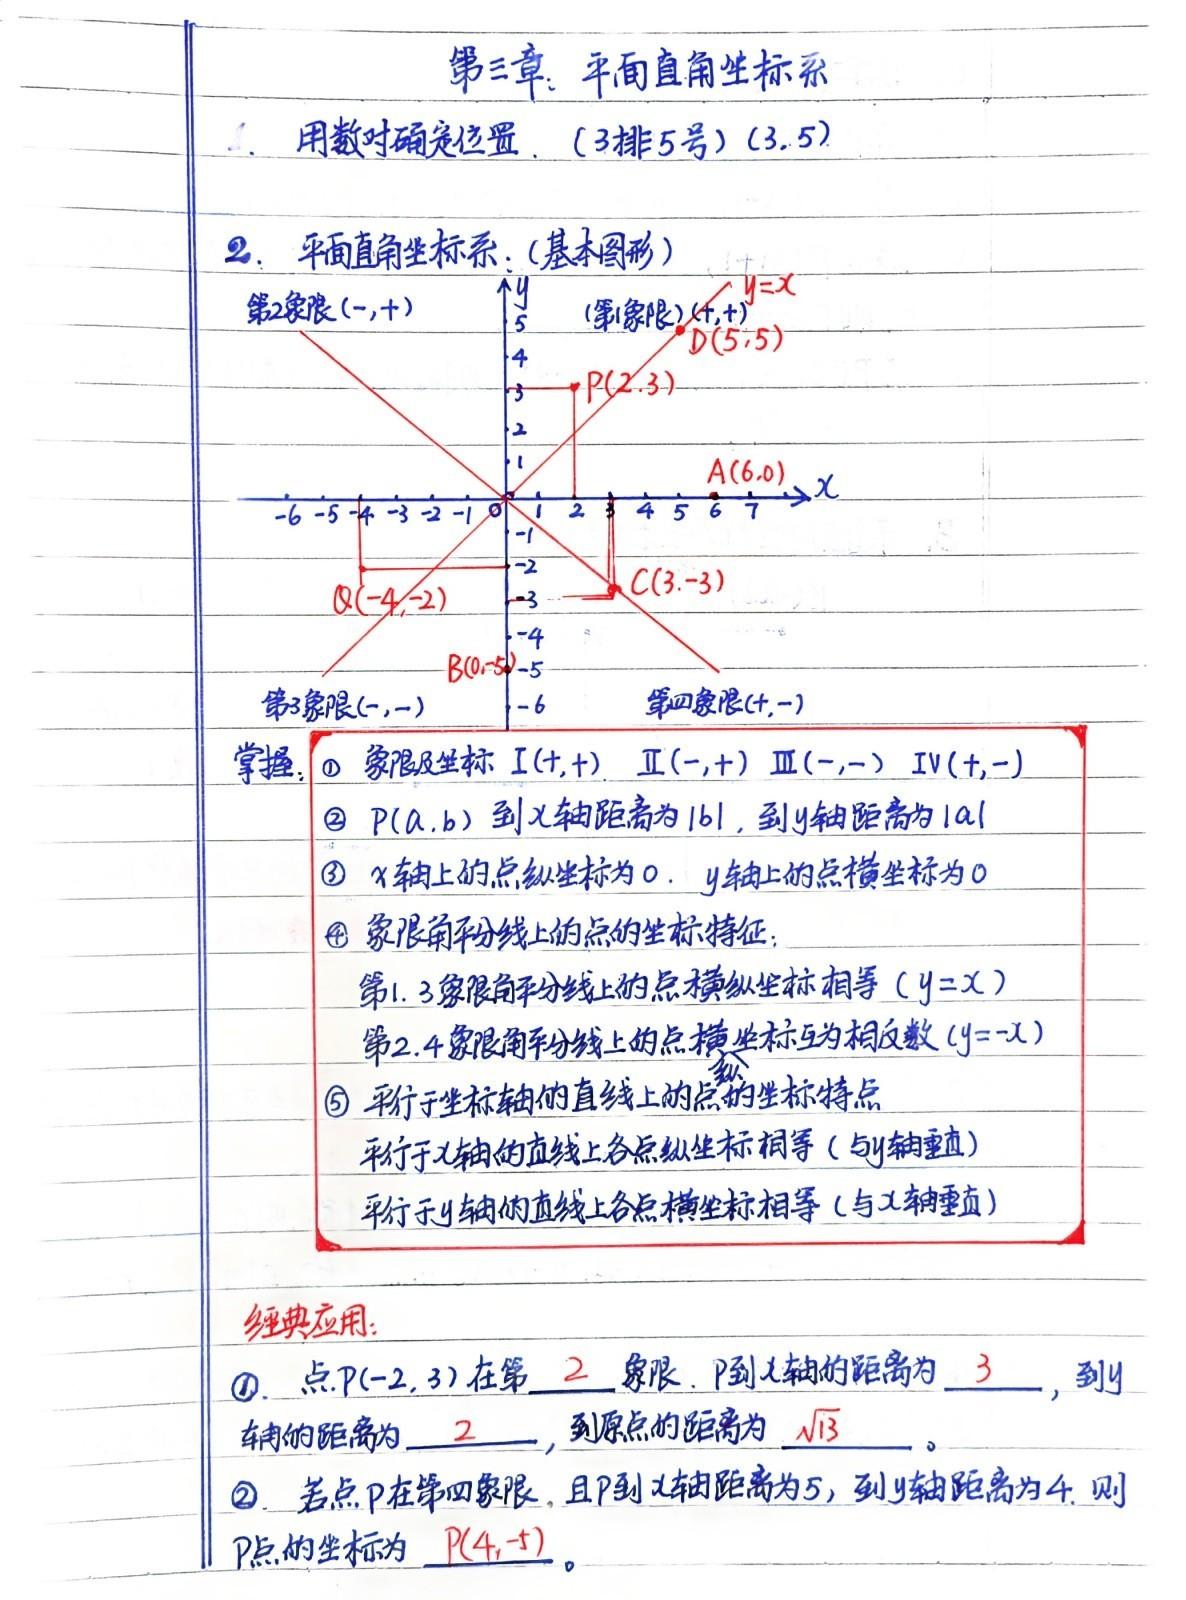 第三章：平面直角坐标系
1. 用数对确定位置．（3排5号）(3.5)
2. 平面直角坐标系：（基本图形）
y
y=x
第2象限(-,+)
(第1象限)(+,+)
5
D(5,5)
4
3
P(2.3)
2
1
A(6,0)
x
-6 -5 -4 -3 -2 -1 0 1 2 3 4 5 6 7
-1
-2
Q(-4,-2)
C(3.-3)
-3
-4
B(0,-5)
-5
第3象限(-,-)
第四象限(+,-)
-6
掌握：① 象限及坐标 I(+,+) II(-,+) III(-,-) IV(+,-)
② P(a.b) 到x轴距离为|b|，到y轴距离为|a|
③ x轴上的点纵坐标为0．y轴上的点横坐标为0
④ 象限角平分线上的点的坐标特征：
第1.3象限角平分线上的点横纵坐标相等（y=x）
第2.4象限角平分线上的点横纵坐标互为相反数(y=-x)
⑤ 平行于坐标轴的直线上的点的坐标特点
平行于x轴的直线上各点纵坐标相等（与y轴垂直）
平行于y轴的直线上各点横坐标相等（与x轴垂直）
经典应用：
①．点P(-2,3)在第 2 象限．P到x轴的距离为 3 ，到y
轴的距离为 2 ，到原点的距离为 √13 。
②．若点P在第四象限．且P到x轴距离为5，到y轴距离为4．则
P点的坐标为 P(4,-5) 。